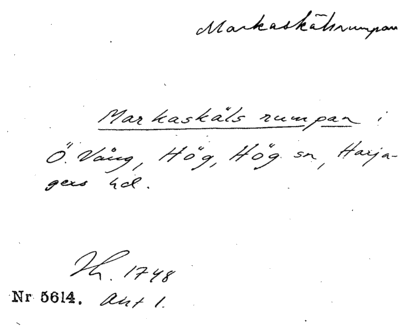 Markaskålsrumpan
Markaskåls rumpan i
Ö. Vång, Hög, Hög sn, Harja-
gers hd.
Lh. 1748
Nr 5614. Akt 1.